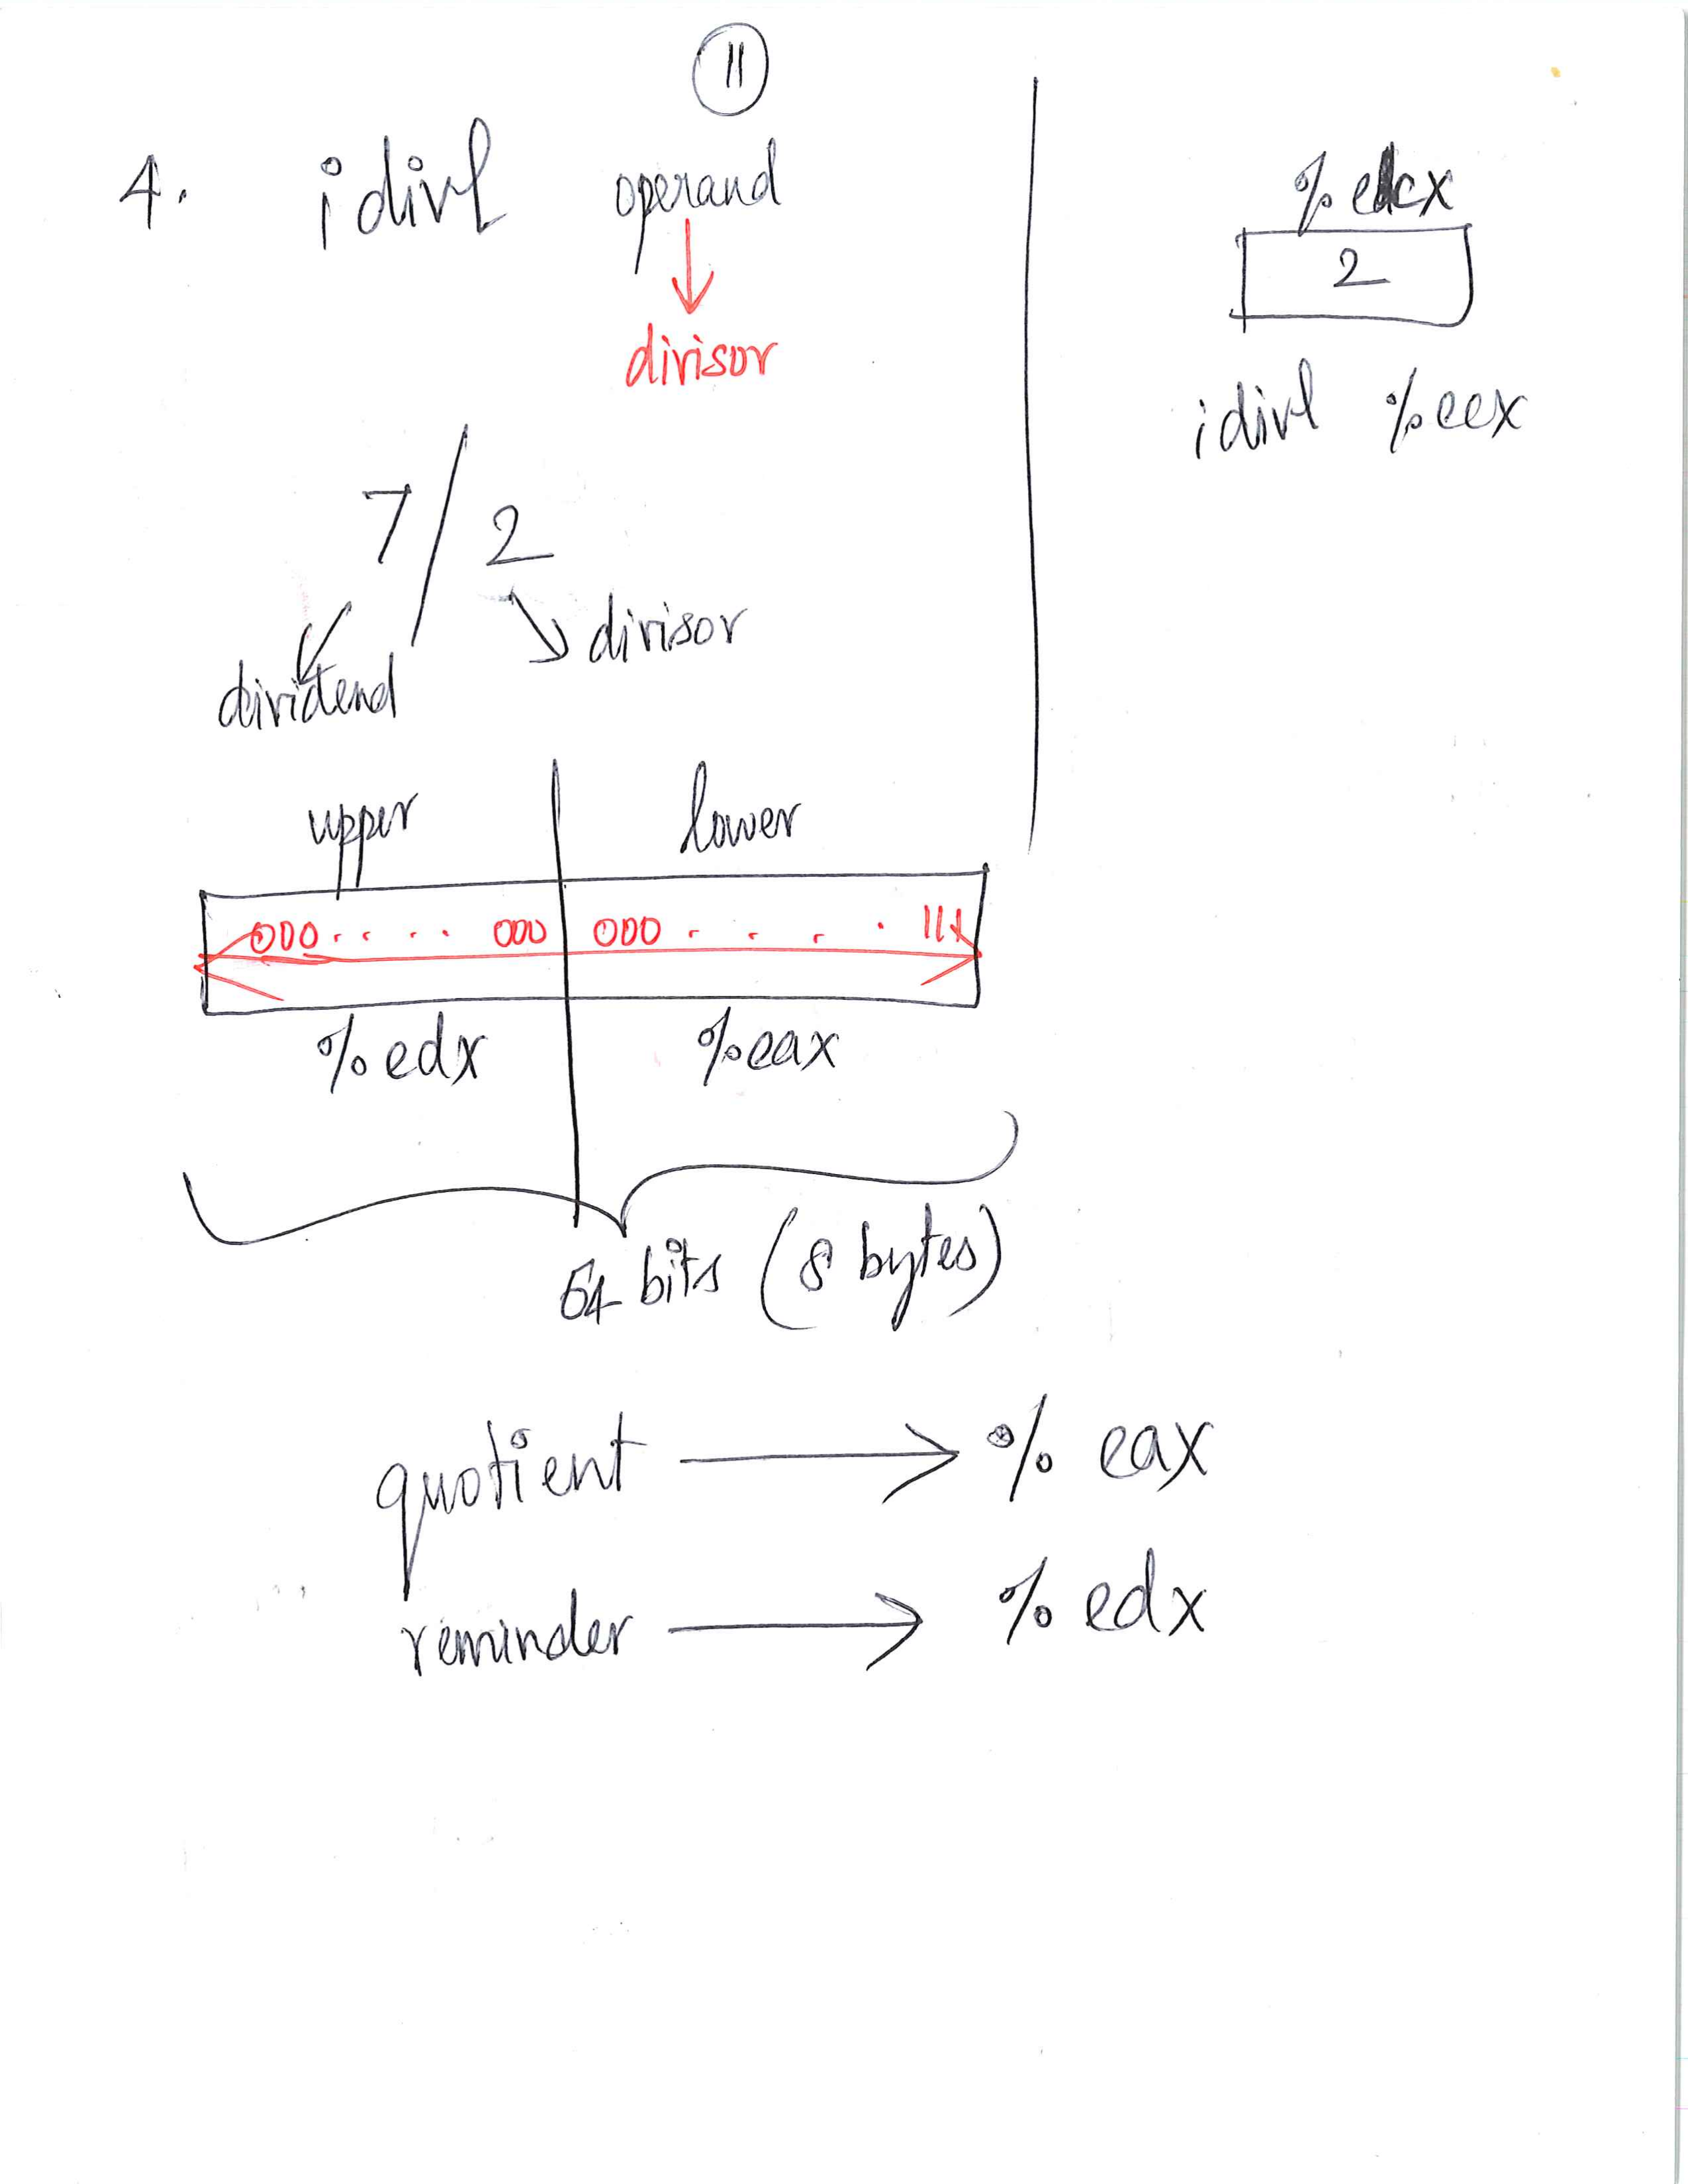 11
4. idivl operand
divisor
7/2
dividend
divisor
upper lower
000..... 000 000 .... 111
%edx %eax
64 bits (8 bytes)
quotient → % eax
reminder → % edx
%ecx
2
idivl %ecx